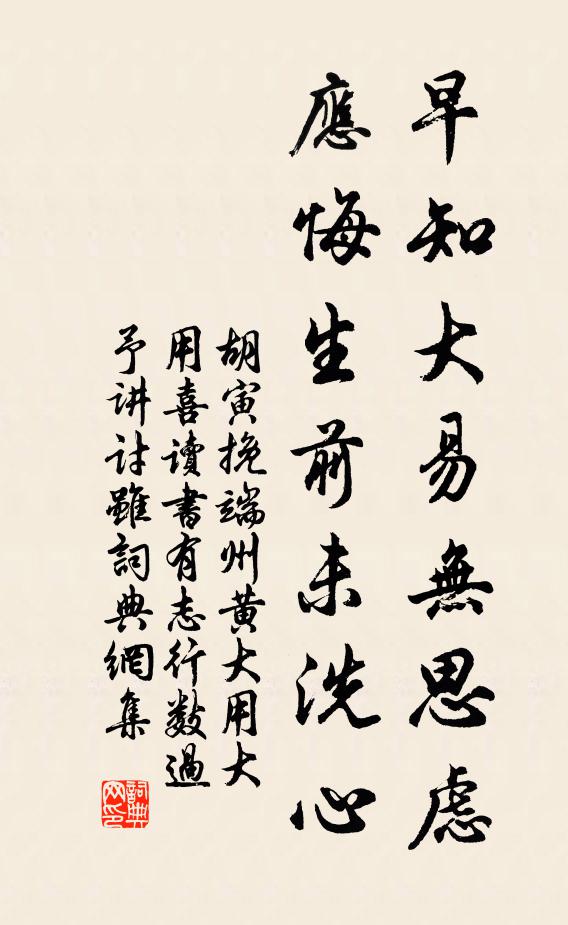 早知大易無思慮
應悔生前未洗心
胡寅挽端州黃大用大
用喜讀書有志行數過
予讲討雖詞典網集
詞典网印